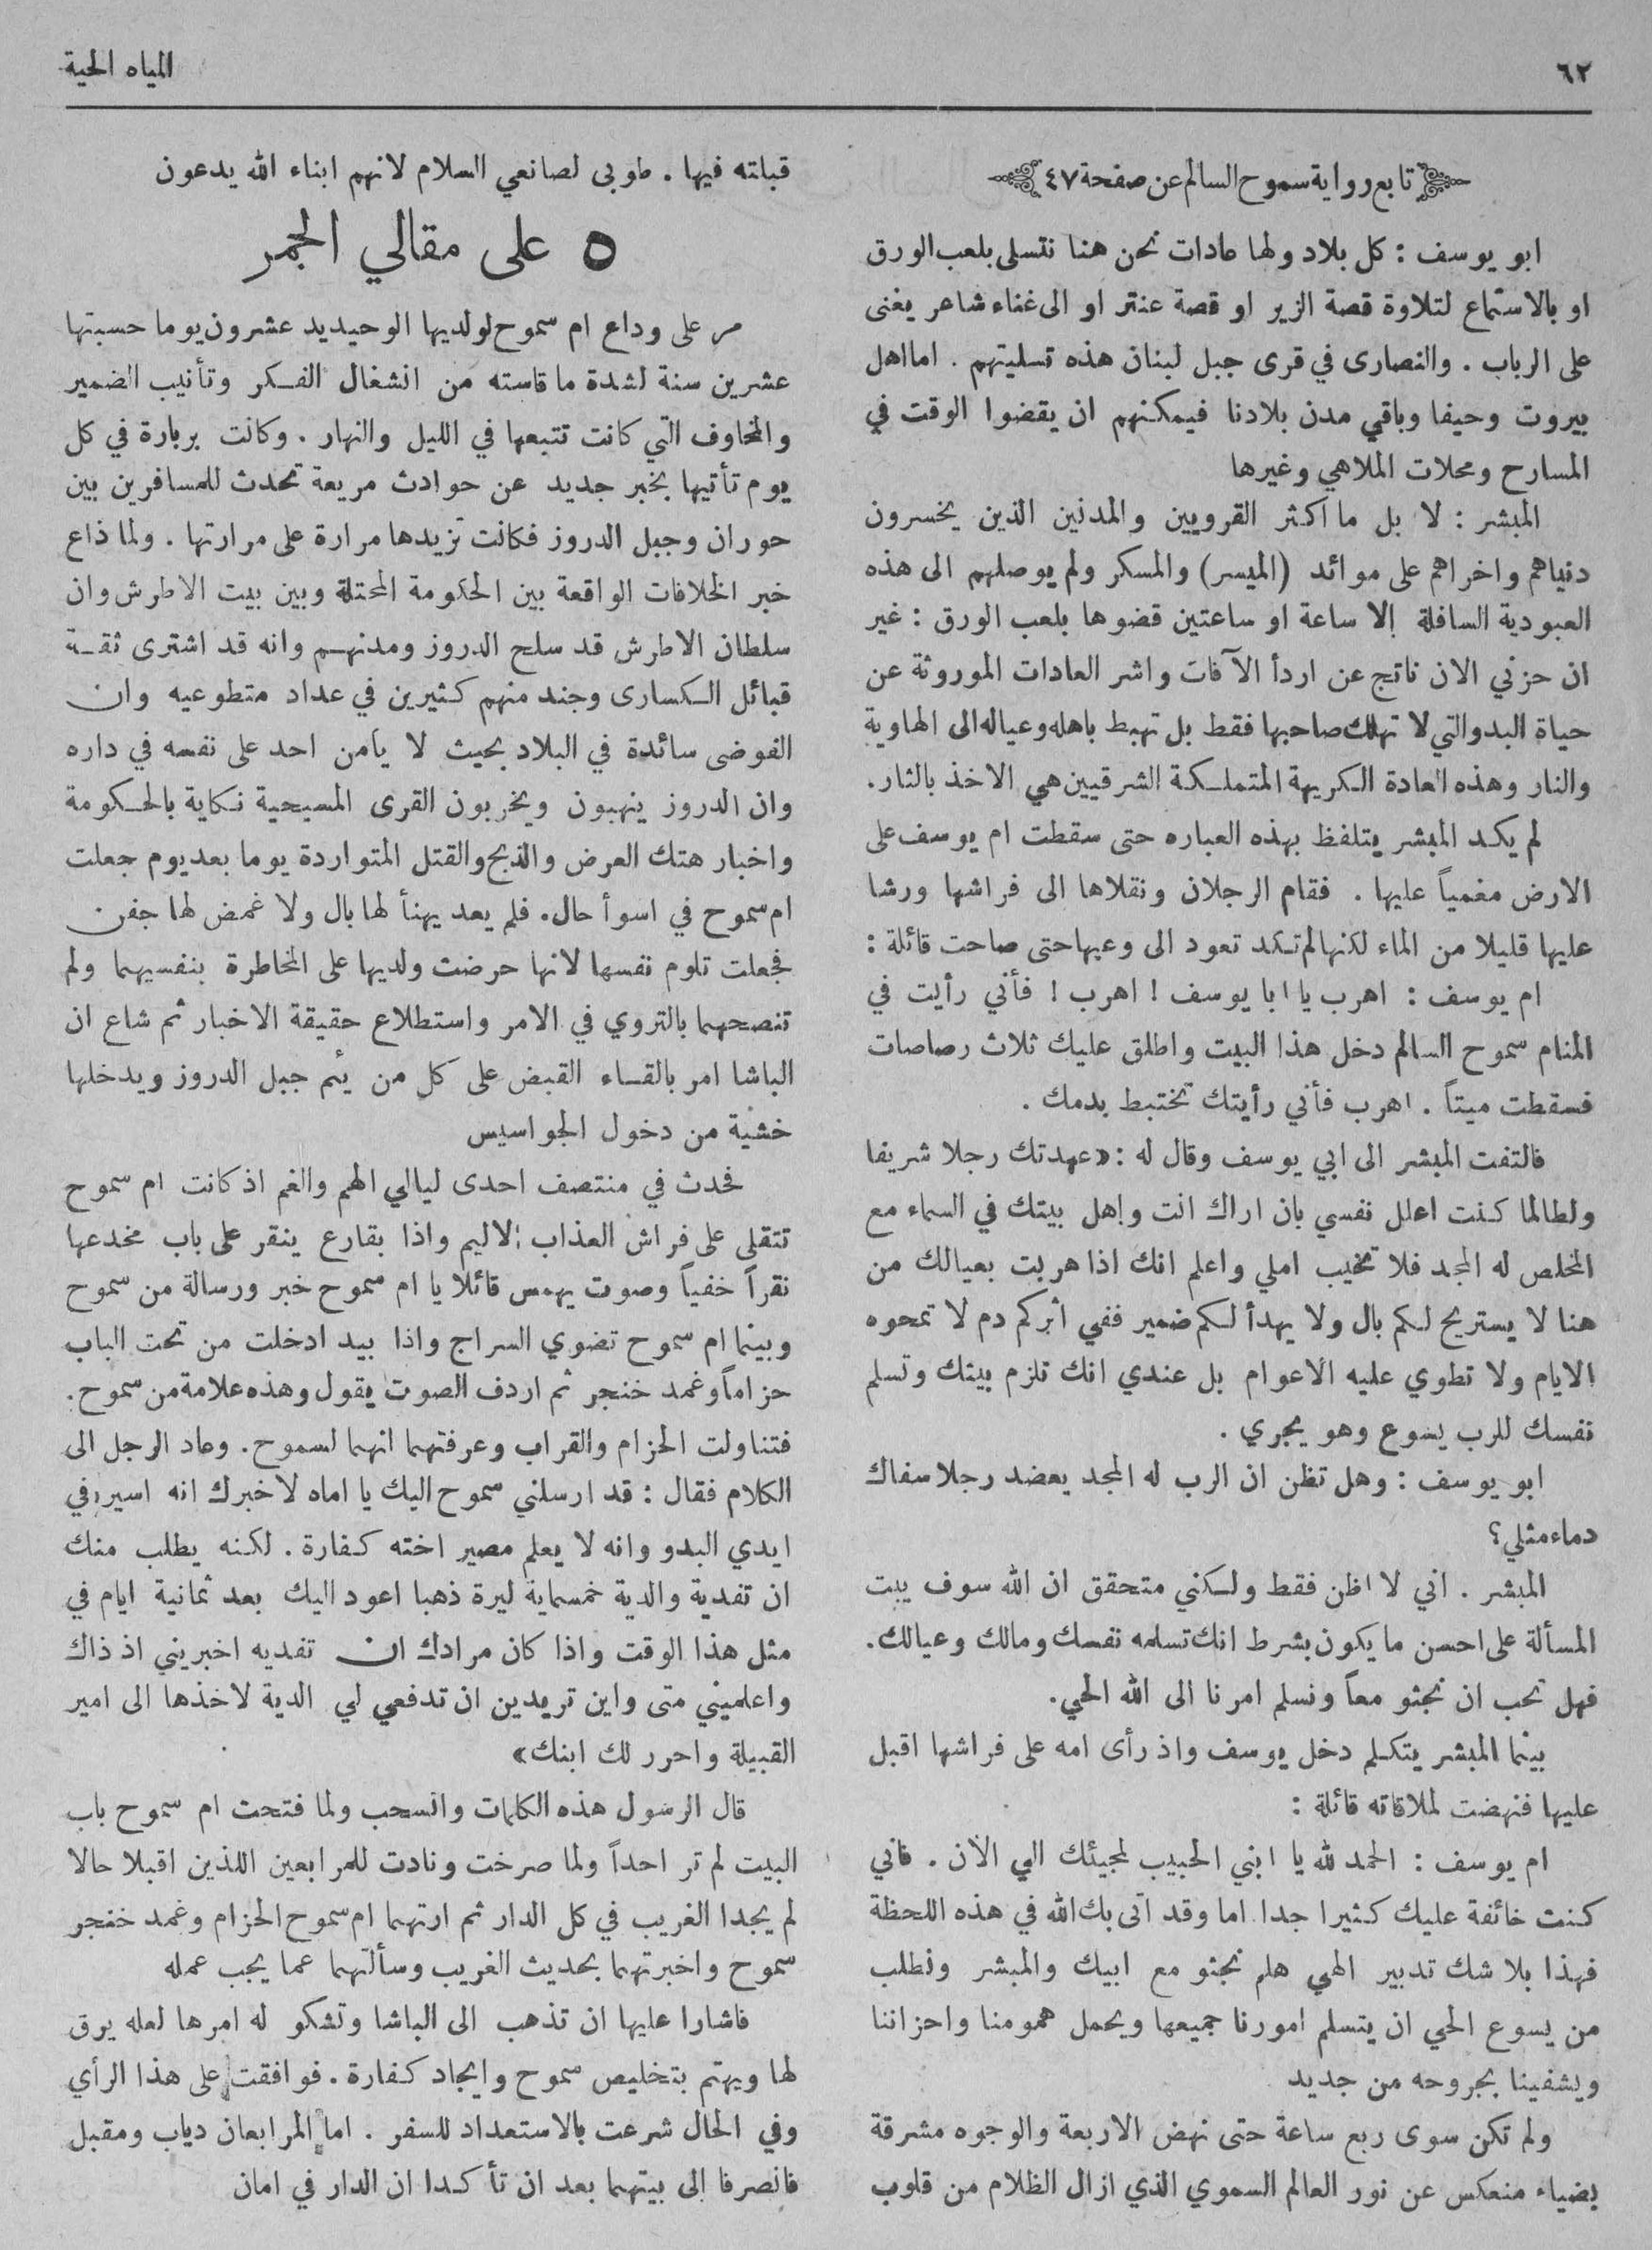 ٦٢
المياه الحية
تابع رواية سموح السالم عن صفحة ٤٧
ابو يوسف : كل بلاد ولها عادات نحن هنا نتسلى بلعب الورق
او بالاستماع لتلاوة قصة الزير او قصة عنتر او الى غناء شاعر يغنى
على الرباب . والنصارى في قرى جبل لبنان هذه تسليتهم . اما اهل
بيروت وحيفا وباقي مدن بلادنا فيمكنهم ان يقضوا الوقت في
المسارح ومحلات الملاهي وغيرها
المبشر : لا بل ما اكثر القرويين والمدنين الذين يخسرون
دنياهم واخراهم على موائد (الميسر) والمسكر ولم يوصلهم الى هذه
العبودية السافلة إلا ساعة او ساعتين قضوها بلعب الورق : غير
ان حزني الان ناتج عن اردأ الآفات واشر العادات الموروثة عن
حياة البدو والتي لا تهلك صاحبها فقط بل تهبط باهله وعياله الى الهاوية
والنار وهذه العادة الكريهة المتملكة الشرقيين هي الاخذ بالثار.
لم يكد المبشر يتلفظ بهذه العباره حتى سقطت ام يوسف على
الارض مغمياً عليها . فقام الرجلان ونقلاها الى فراشها ورشا
عليها قليلا من الماء لكنها لم تكد تعود الى وعيها حتى صاحت قائلة :
ام يوسف : اهرب يا ابا يوسف ! اهرب ! فأني رأيت في
المنام سموح السالم دخل هذا البيت واطلق عليك ثلاث رصاصات
فسقطت ميتاً . اهرب فأني رأيتك تختبط بدمك .
فالتفت المبشر الى ابي يوسف وقال له : «عهدتك رجلا شريفا
ولطالما كنت اعلل نفسي بان اراك انت واهل بيتك في السماء مع
المخلص له المجد فلا تخيب املي واعلم انك اذا هربت بعيالك من
هنا لا يستريح لكم بال ولا يهدأ لكم ضمير ففي اثركم دم لا تمحوه
الايام ولا تطوي عليه الاعوام بل عندي انك تلزم بيتك وتسلم
نفسك للرب يسوع وهو يجري .
ابو يوسف : وهل تظن ان الرب له المجد يعضد رجلا سفاك
دماء مثلي؟
المبشر . اني لا اظن فقط ولكني متحقق ان الله سوف يبت
المسألة على احسن ما يكون بشرط انك تسلمه نفسك ومالك وعيالك.
فهل تحب ان نجثو معاً ونسلم امرنا الى الله الحي.
بينما المبشر يتكلم دخل يوسف واذ رأى امه على فراشها اقبل
عليها فنهضت لملاقاته قائلة :
ام يوسف : الحمد لله يا ابني الحبيب لمجيئك الي الان . فاني
كنت خائفة عليك كثيرا جدا اما وقد اتى بك الله في هذه اللحظة
فهذا بلا شك تدبير الهي هلم نجثو مع ابيك والمبشر ونطلب
من يسوع الحي ان يتسلم امورنا جميعها ويحمل همومنا واحزاننا
ويشفينا بجروحه من جديد
ولم تكن سوى ربع ساعة حتى نهض الاربعة والوجوه مشرقة
بضياء منعكس عن نور العالم السموي الذي ازال الظلام من قلوب
قباتته فيها . طوبى لصانعي السلام لانهم ابناء الله يدعون
٥ على مقالي الجمر
مر على وداع ام سموح لولديها الوحيديد عشرون يوما حسبتها
عشرين سنة لشدة ما قاسته من انشغال الفكر وتأنيب الضمير
والمخاوف التي كانت تتبعها في الليل والنهار . وكانت بربارة في كل
يوم تأتيها بخبر جديد عن حوادث مريعة تحدث للمسافرين بين
حوران وجبل الدروز فكانت تزيدها مرارة على مرارتها . ولما ذاع
خبر الخلافات الواقعة بين الحكومة المحتلة وبين بيت الاطرش وان
سلطان الاطرش قد سلح الدروز ومدنهم وانه قد اشترى ثقة
قبائل الكسارى وجند منهم كثيرين في عداد متطوعيه وان
الفوضى سائدة في البلاد بحيث لا يأمن احد على نفسه في داره
وان الدروز ينهبون ويخربون القرى المسيحية نكاية بالحكومة
واخبار هتك العرض والذبح والقتل المتواردة يوما بعد يوم جعلت
ام سموح في اسوأ حال. فلم يعد يهنأ لها بال ولا غمض لها جفن
فجعلت تلوم نفسها لانها حرضت ولديها على المخاطرة بنفسيهما ولم
تنصحهما بالتروي في الامر واستطلاع حقيقة الاخبار ثم شاع ان
الباشا امر بالقاء القبض على كل من يئم جبل الدروز ويدخلها
خشية من دخول الجواسيس
فحدث في منتصف احدى ليالي الهم والغم اذ كانت ام سموح
تتقلى على فراش العذاب الاليم واذا بقارع ينقر على باب مخدعها
نقراً خفياً وصوت يهمس قائلا يا ام سموح خبر ورسالة من سموح
وبينما ام سموح تضوي السراج واذا بيد ادخلت من تحت الباب
حزاماً وغمد خنجر ثم اردف الصوت يقول وهذه علامة من سموح.
فتناولت الحزام والقراب وعرفتهما انهما لسموح. وعاد الرجل الى
الكلام فقال : قد ارسلني سموح اليك يا اماه لاخبرك انه اسير في
ايدي البدو وانه لا يعلم مصير اخته كفارة. لكنه يطلب منك
ان تفدية والدية خمسماية ليرة ذهبا اعود اليك بعد ثمانية ايام في
مثل هذا الوقت واذا كان مرادك ان تفديه اخبريني اذ ذاك
واعلميني متى واين تريدين ان تدفعي لي الدية لاخذها الى امير
القبيلة واحرر لك ابنك»
قال الرسول هذه الكلمات وانسحب ولما فتحت ام سموح باب
البيت لم تر احداً ولما صرخت ونادت للمرابعين اللذين اقبلا حالا
لم يجدا الغريب في كل الدار ثم ارتهما ام سموح الحزام وغمد خنجر
سموح واخبرتهما بحديث الغريب وسألتهما عما يجب عمله
فاشارا عليها ان تذهب الى الباشا وتشكو له امرها لعله يرق
لها ويهتم بتخليص سموح وايجاد كفارة. فوافقت على هذا الرأي
وفي الحال شرعت بالاستعداد للسفر . اما المرابعان دياب ومقبل
فانصرفا الى بيتهما بعد ان تأكدا ان الدار في امان